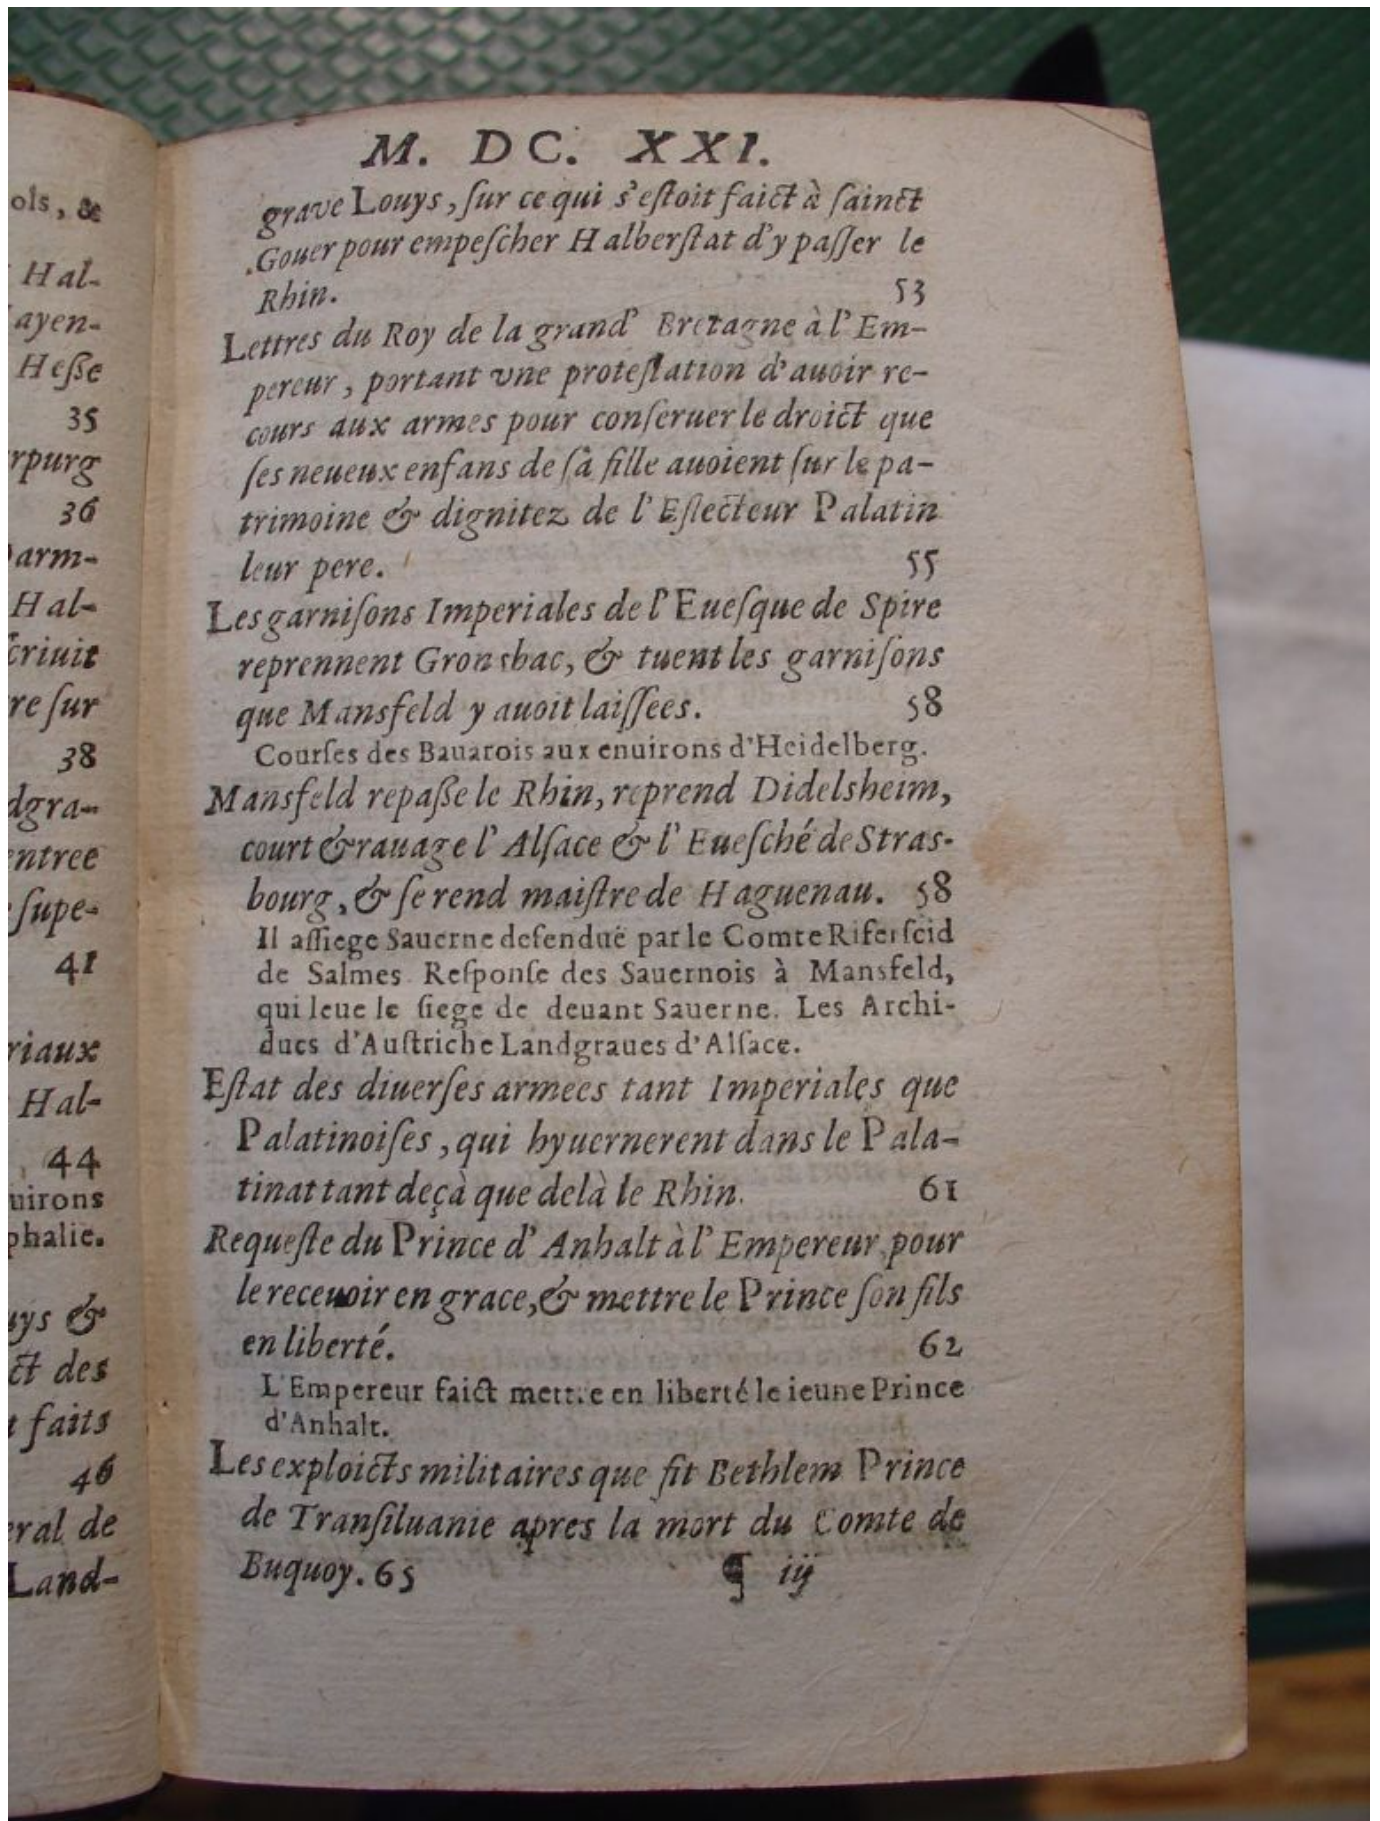 ols, &
Hal-
ayen-
Hesse
35
rpurg
36
arm-
Hal-
criuit
re sur
38
dgra-
entree
supe-
41
riaux
Hal-
44
uirons
phalie.
uys &
ct des
t faits
46
eral de
Land-
M. DC. XXI.
grave Louys, ſur ce qui s'eſtoit faict à ſainct
Gouer pour empeſcher Halberſtat d'y paſſer le
Rhin. 53
Lettres du Roy de la grand' Bretagne à l'Em-
pereur, portant vne proteſtation d'auoir re-
cours aux armes pour conſeruer le droict que
ſes neueux enfans de ſa fille auoient ſur le pa-
trimoine & dignitez de l'Eſlecteur Palatin
leur pere. 55
Les garniſons Imperiales de l'Eueſque de Spire
reprennent Gronsbac, & tuent les garniſons
que Mansfeld y auoit laiſſees. 58
Courſes des Bauarois aux enuirons d'Heidelberg.
Mansfeld repaße le Rhin, reprend Didelsheim,
court & rauage l'Alſace & l'Eueſché de Stras-
bourg, & ſe rend maiſtre de Haguenau. 58
Il aſſiege Sauerne defenduë par le Comte Riferſcid
de Salmes. Reſponſe des Sauernois à Mansfeld,
qui leue le ſiege de deuant Sauerne. Les Archi-
ducs d'Auſtriche Landgraues d'Alſace.
Eſtat des diuerſes armees tant Imperiales que
Palatinoiſes, qui hyuernerent dans le Pala-
tinat tant deçà que delà le Rhin. 61
Requeſte du Prince d'Anhalt à l'Empereur, pour
le receuoir en grace, & mettre le Prince ſon fils
en liberté. 62
L'Empereur faict mettre en liberté le ieune Prince
d'Anhalt.
Les exploicts militaires que fit Bethlem Prince
de Tranſiluanie apres la mort du Comte de
Buquoy. 65 ¶ iij